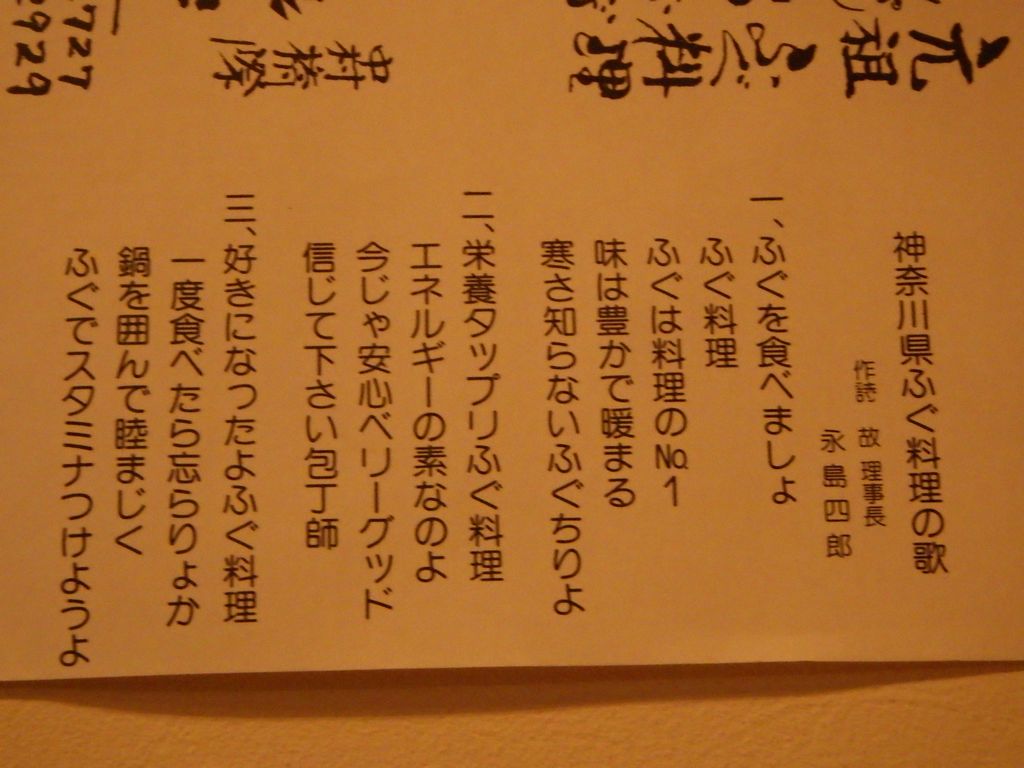 元祖
ふぐ料理
中村
727
2929
神奈川県ふぐ料理の歌
作詩 故 理事長
永島四郎
一、ふぐを食べましょ
ふぐ料理
ふぐは料理のNo.1
味は豊かで暖まる
寒さ知らないふぐちりよ
二、栄養タップリふぐ料理
エネルギーの素なのよ
今じゃ安心ベリーグッド
信じて下さい包丁師
三、好きになったよふぐ料理
一度食べたら忘らりょか
鍋を囲んで睦まじく
ふぐでスタミナつけようよ